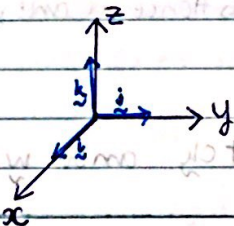 z
k
j
y
i
x